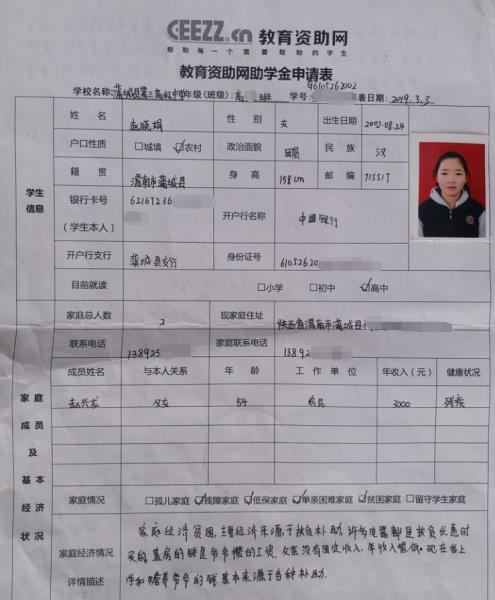 CEEZZ.cn 教育资助网
帮助每一个需要帮助的学生
教育资助网助学金申请表
学校名称: 蒲城县第三高级中学 年级(班级): 高 班 学号: G6105262002 填表日期: 2019.3.3
学生信息
姓名 赵晓娟 性别 女 出生日期 2002.08.24
户口性质 □城镇 ☑农村 政治面貌 团员 民族 汉
籍贯 渭南市蒲城县 身高 158cm 邮编 715517
银行卡号(学生本人) 62167236 开户行名称 中国银行
开户行支行 蒲城县支行 身份证号 61052620
目前就读 □小学 □初中 ☑高中
家庭成员及基本经济状况
家庭总人数 2 现家庭住址 陕西省渭南市蒲城县
联系电话 138925 家庭联系电话 13892
成员姓名 与本人关系 年龄 工作单位 年收入(元) 健康状况
赵兴龙 父女 54 农民 3000 残疾
家庭情况 □孤儿家庭 ☑残障家庭 ☑低保家庭 ☑单亲困难家庭 ☑贫困家庭 □留守学生家庭
家庭经济情况详情描述
家庭经济贫困,主要经济来源于扶贫补助,许多电器都是扶贫优惠时
买的,盖房的钱是爷爷攒的工资,父亲没有固定收入,年收入很低,现在我上
学和赡养爷爷的钱基本来源于各种补助.